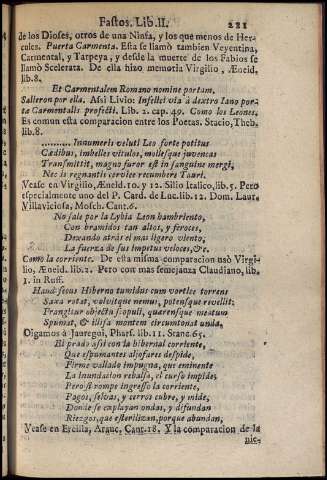 Fastos. Lib. II. 221
de los Dioses, otros de una Ninfa, y los que menos de Her-
cules. Puerta Carmenta. Esta se llamò tambien Veyentina,
Carmental, y Tarpeya, y desde la muerte de los Fabios se
llamò Scelerata. De ella hizo memoria Virgilio, Æneid.
lib. 8.
Et Carmentalem Romano nomine portam,
Salieron por ella. Assi Livio: Infelici via à dextro Iano por-
tæ Carmentalis profecti. Lib. 2. cap. 49. Como los Leones.
Es comun esta comparacion entre los Poetas. Stacio, Theb.
lib. 8.
.......... Innumeris veluti Leo forte potitus
Cædibus, imbelles vitulos, mollesque juvencas
Transmittit, magno furor est in sanguine mergi,
Nec is regnantis cervice recumbere Tauri.
Vease en Virgilio, Æneid. 10. y 12. Silio Italico, lib. 5. Pero
especialmente uno del P. Card. de Luc. lib. 12. Dom. Laur,
Villaviciosa, Mosch. Cant. 6.
No sale por la Lybia Leon hambriento,
Con bramidos tan altos, y feroces,
Dexando atràs el mas ligero viento,
La fuerza de sus impetus veloces, &c.
Como la corriente. De esta misma comparacion usò Virgi-
lio, Æneid. lib. 2. Pero con mas semejanza Claudiano, lib.
1. in Ruff.
Haud secus Hiberno tumidus cum vortice torrens
Saxa rotat, volvitque nemus, potensque revellit:
Frangitur objectu scopuli, quærensque meatum
Spumat, & elisa montem circumtonat unda,
Oigamos à Jauregui, Phars. lib. 11. Stanc. 65.
El prado assi con la hibernal corriente,
Que espumantes aljofares despide,
Firme vallado impugna, que eminente
La inundacion rebalsa, el curso impide,
Pero si rompe ingresso la corriente,
Pagos, selvas, y cerros cubre, y mide,
Donde se explayan ondas, y difundan
Riezgos, que esterilizan, porque abundan,
Vease en Ercilla, Arauc. Cant. 18. Y la comparacion de la
nie-